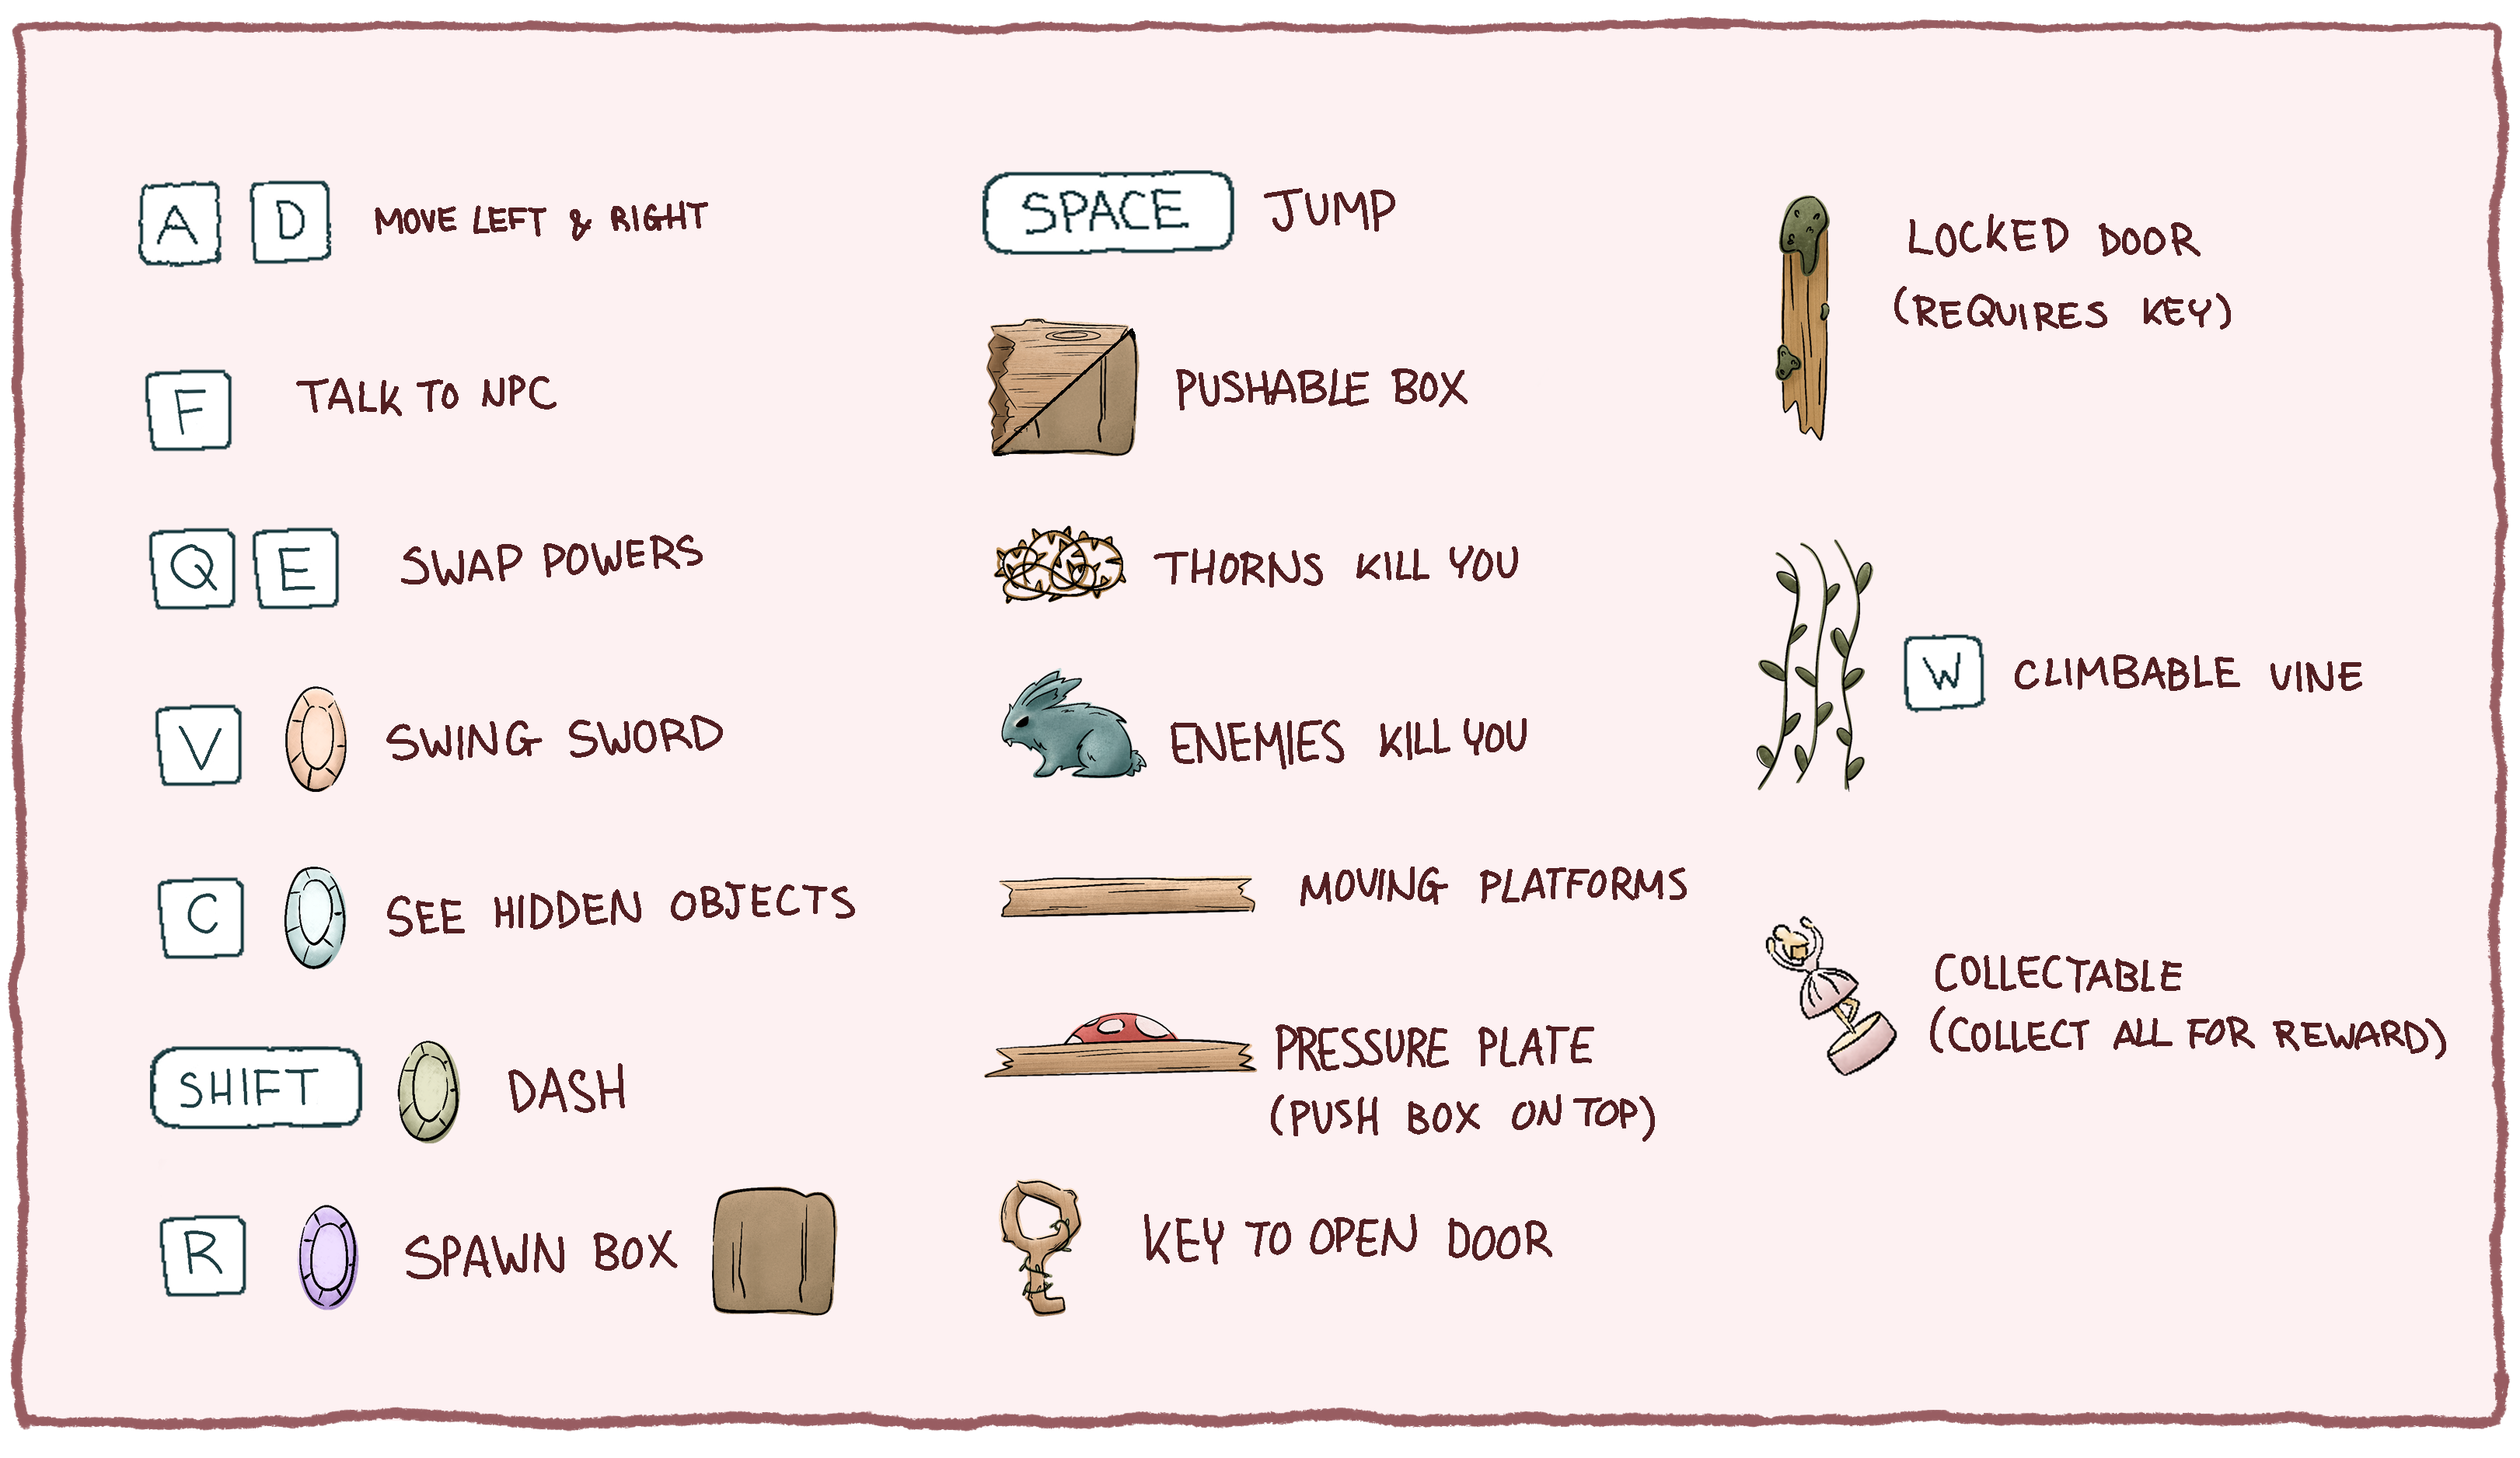 A D MOVE LEFT & RIGHT
F TALK TO NPC
Q E SWAP POWERS
V SWING SWORD
C SEE HIDDEN OBJECTS
SHIFT DASH
R SPAWN BOX
SPACE JUMP
PUSHABLE BOX
THORNS KILL YOU
ENEMIES KILL YOU
MOVING PLATFORMS
PRESSURE PLATE
(PUSH BOX ON TOP)
KEY TO OPEN DOOR
LOCKED DOOR
(REQUIRES KEY)
W CLIMBABLE VINE
COLLECTABLE
(COLLECT ALL FOR REWARD)